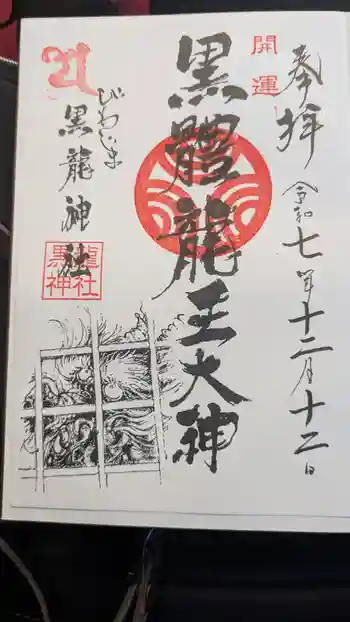 奉拝
令和七年十二月十二日
開運
黒體龍王大神
びわじま
黒龍神社
黒龍
神社